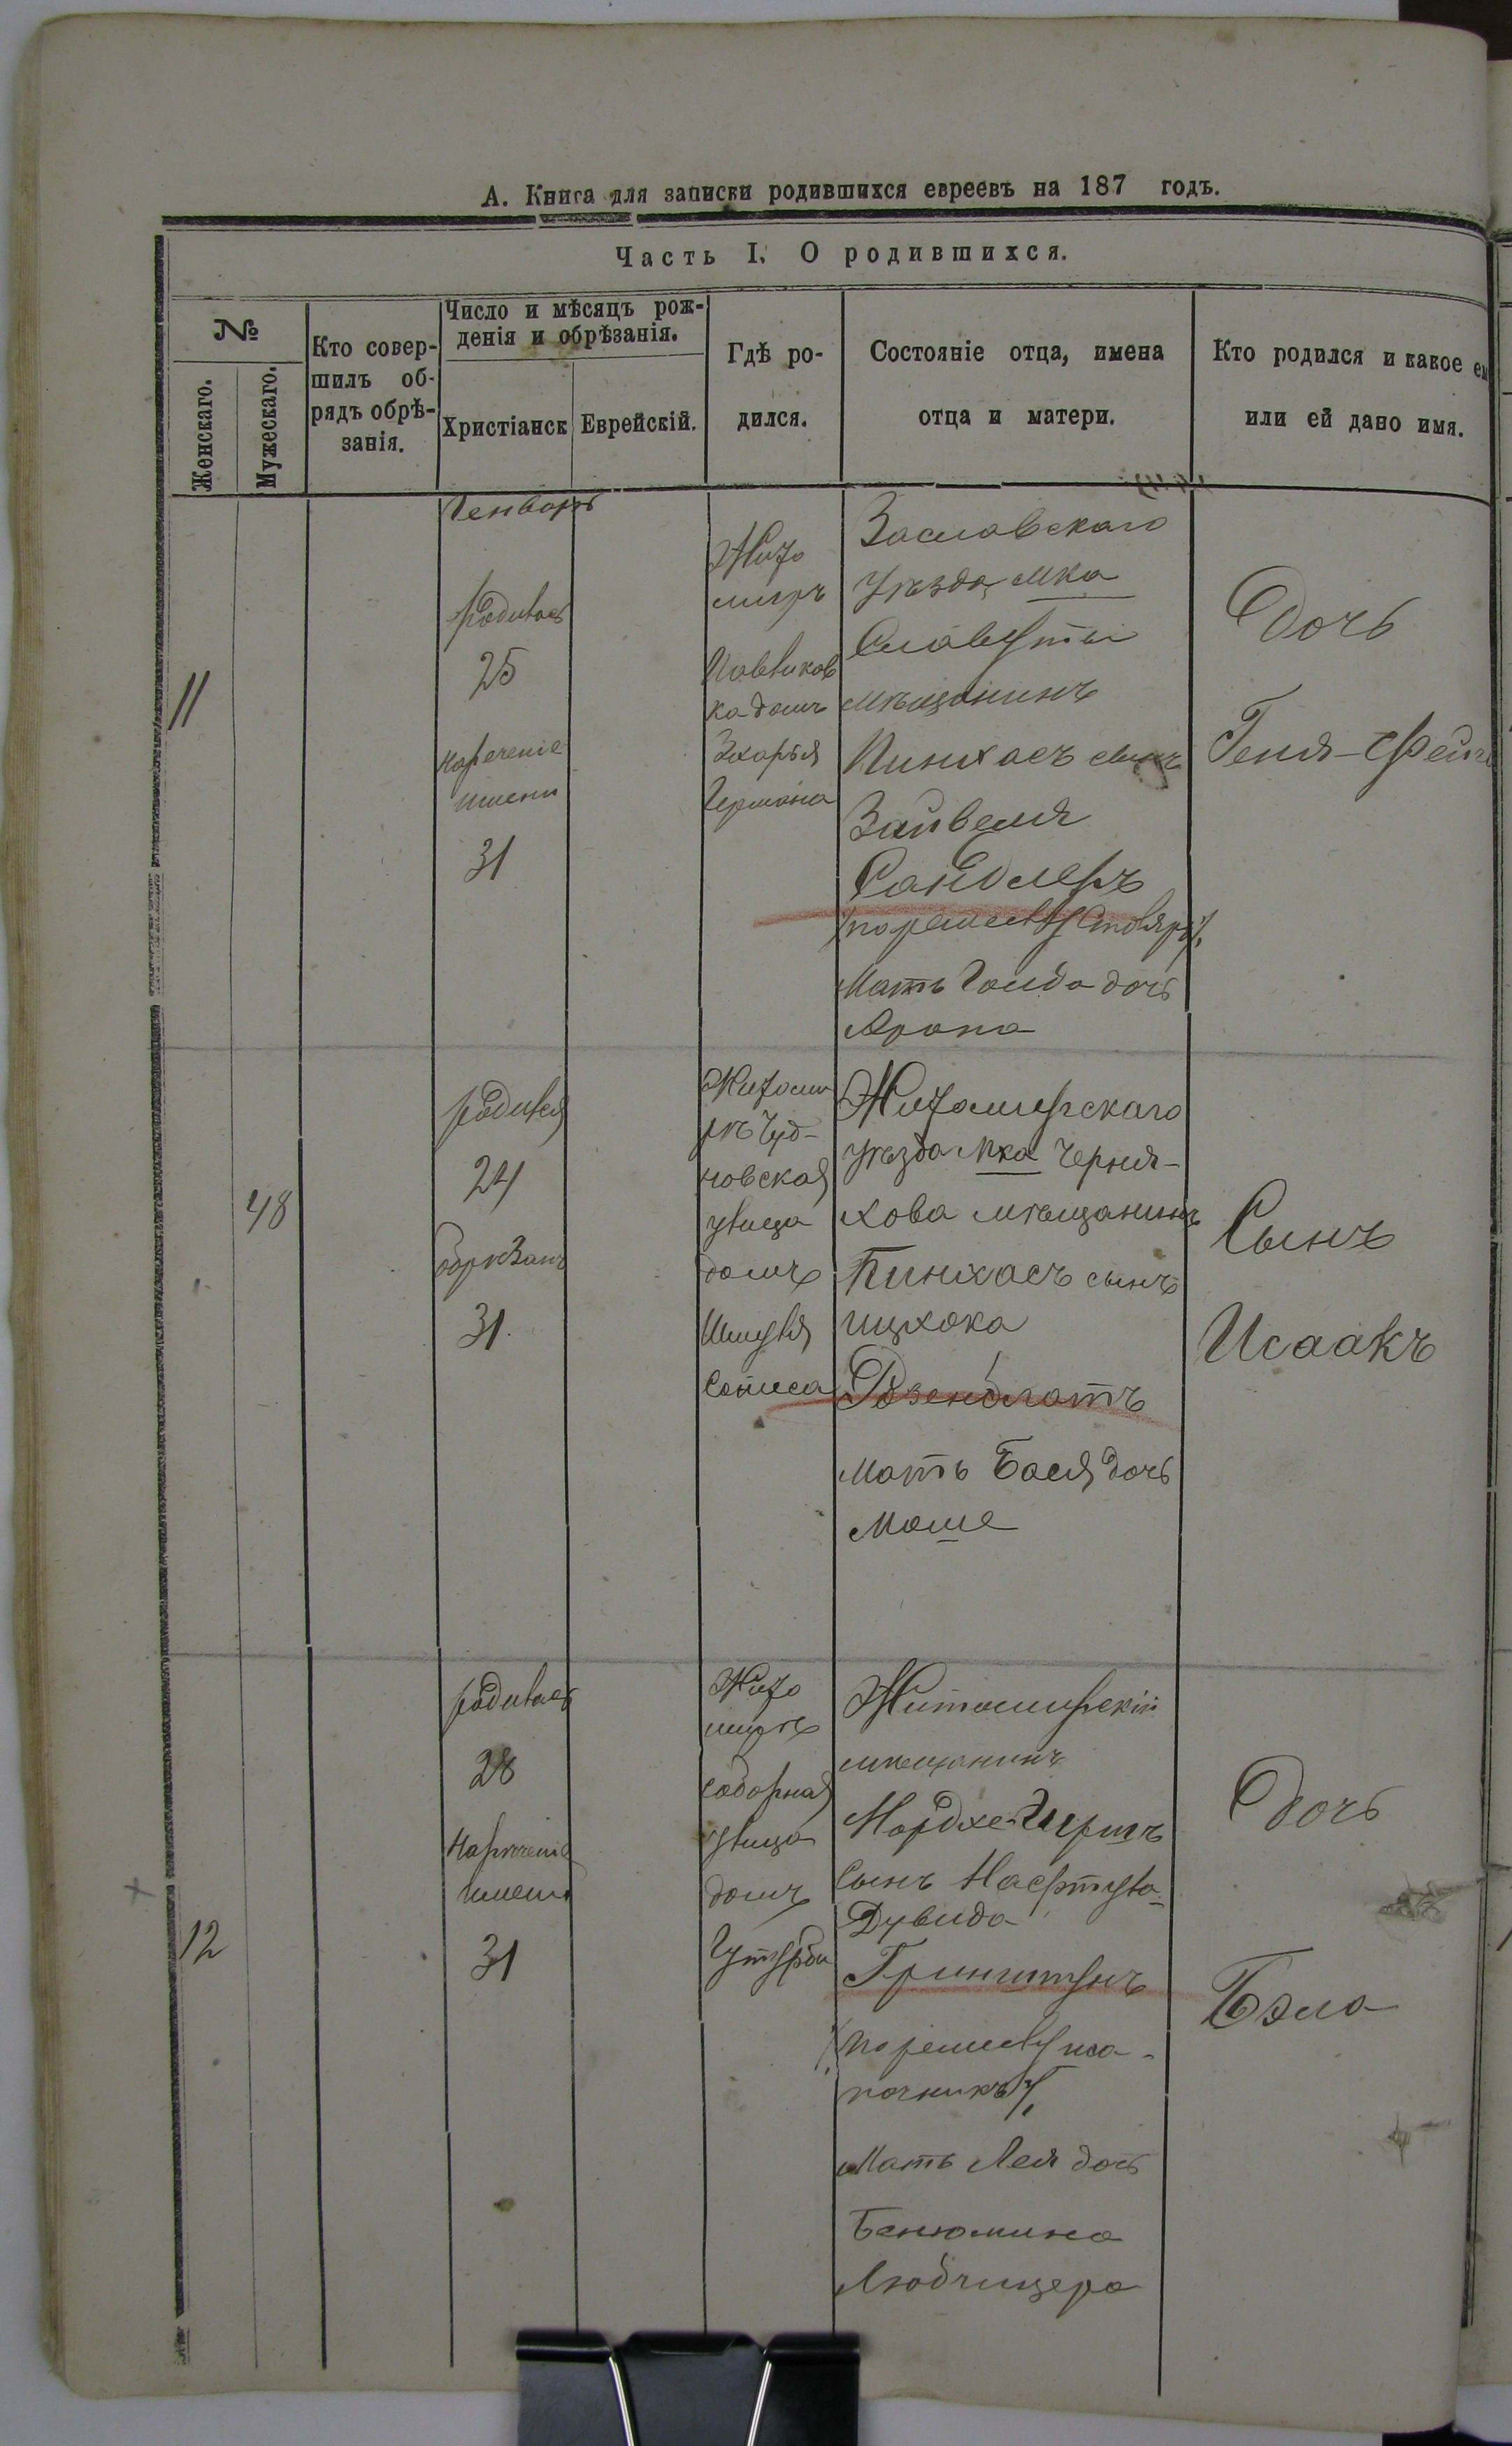 А. Книга для записки родившихся евреевъ на 187 годъ.
Часть I. О родившихся.
№
Женскаго.
Мужескаго.
Кто совер-
шилъ об-
рядъ обрѣ-
занія.
Число и мѣсяцъ рож-
денія и обрѣзанія.
Христіанск
Еврейскій.
Гдѣ ро-
дился.
Состояніе отца, имена
отца и матери.
Кто родился и какое ем
или ей дано имя.
11
Генварь
родилась
25
наречение
имени
31
Жито
миръ
ка домъ
Германа
Заславскаго
уѣзда мка
Славуты
мѣщанинъ
Пинхасъ сынъ
Зайвеля
Сандлеръ
/по ремеслу столяръ/.
Мать Голда дочь
Арона
Дочь
Геня-Фейга
48
родился
24
обрѣзанъ
31.
Житоми
ръ Чуд-
новская
улица
домъ
Шмуля
Житомирскаго
уѣзда мка Черня-
хова мѣщанинъ
Пинхасъ сынъ
Ицхока
Розенблатъ
Мать Бася дочь
Моше
Сынъ
Исаакъ
12
родилась
28
наречение
имени
31
Жито
миръ
соборная
улица
домъ
Житомирскій
мѣщанинъ
Мордхе-Гершъ
сынъ Нафтула-
Дувида
Гринштунъ
/по ремеслу ша-
почникъ/.
Мать Лея дочь
Бенюмина
Любчицера
Дочь
Бэла